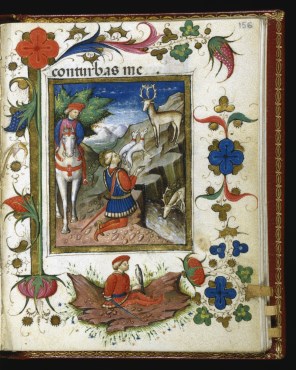 156
conturbas me